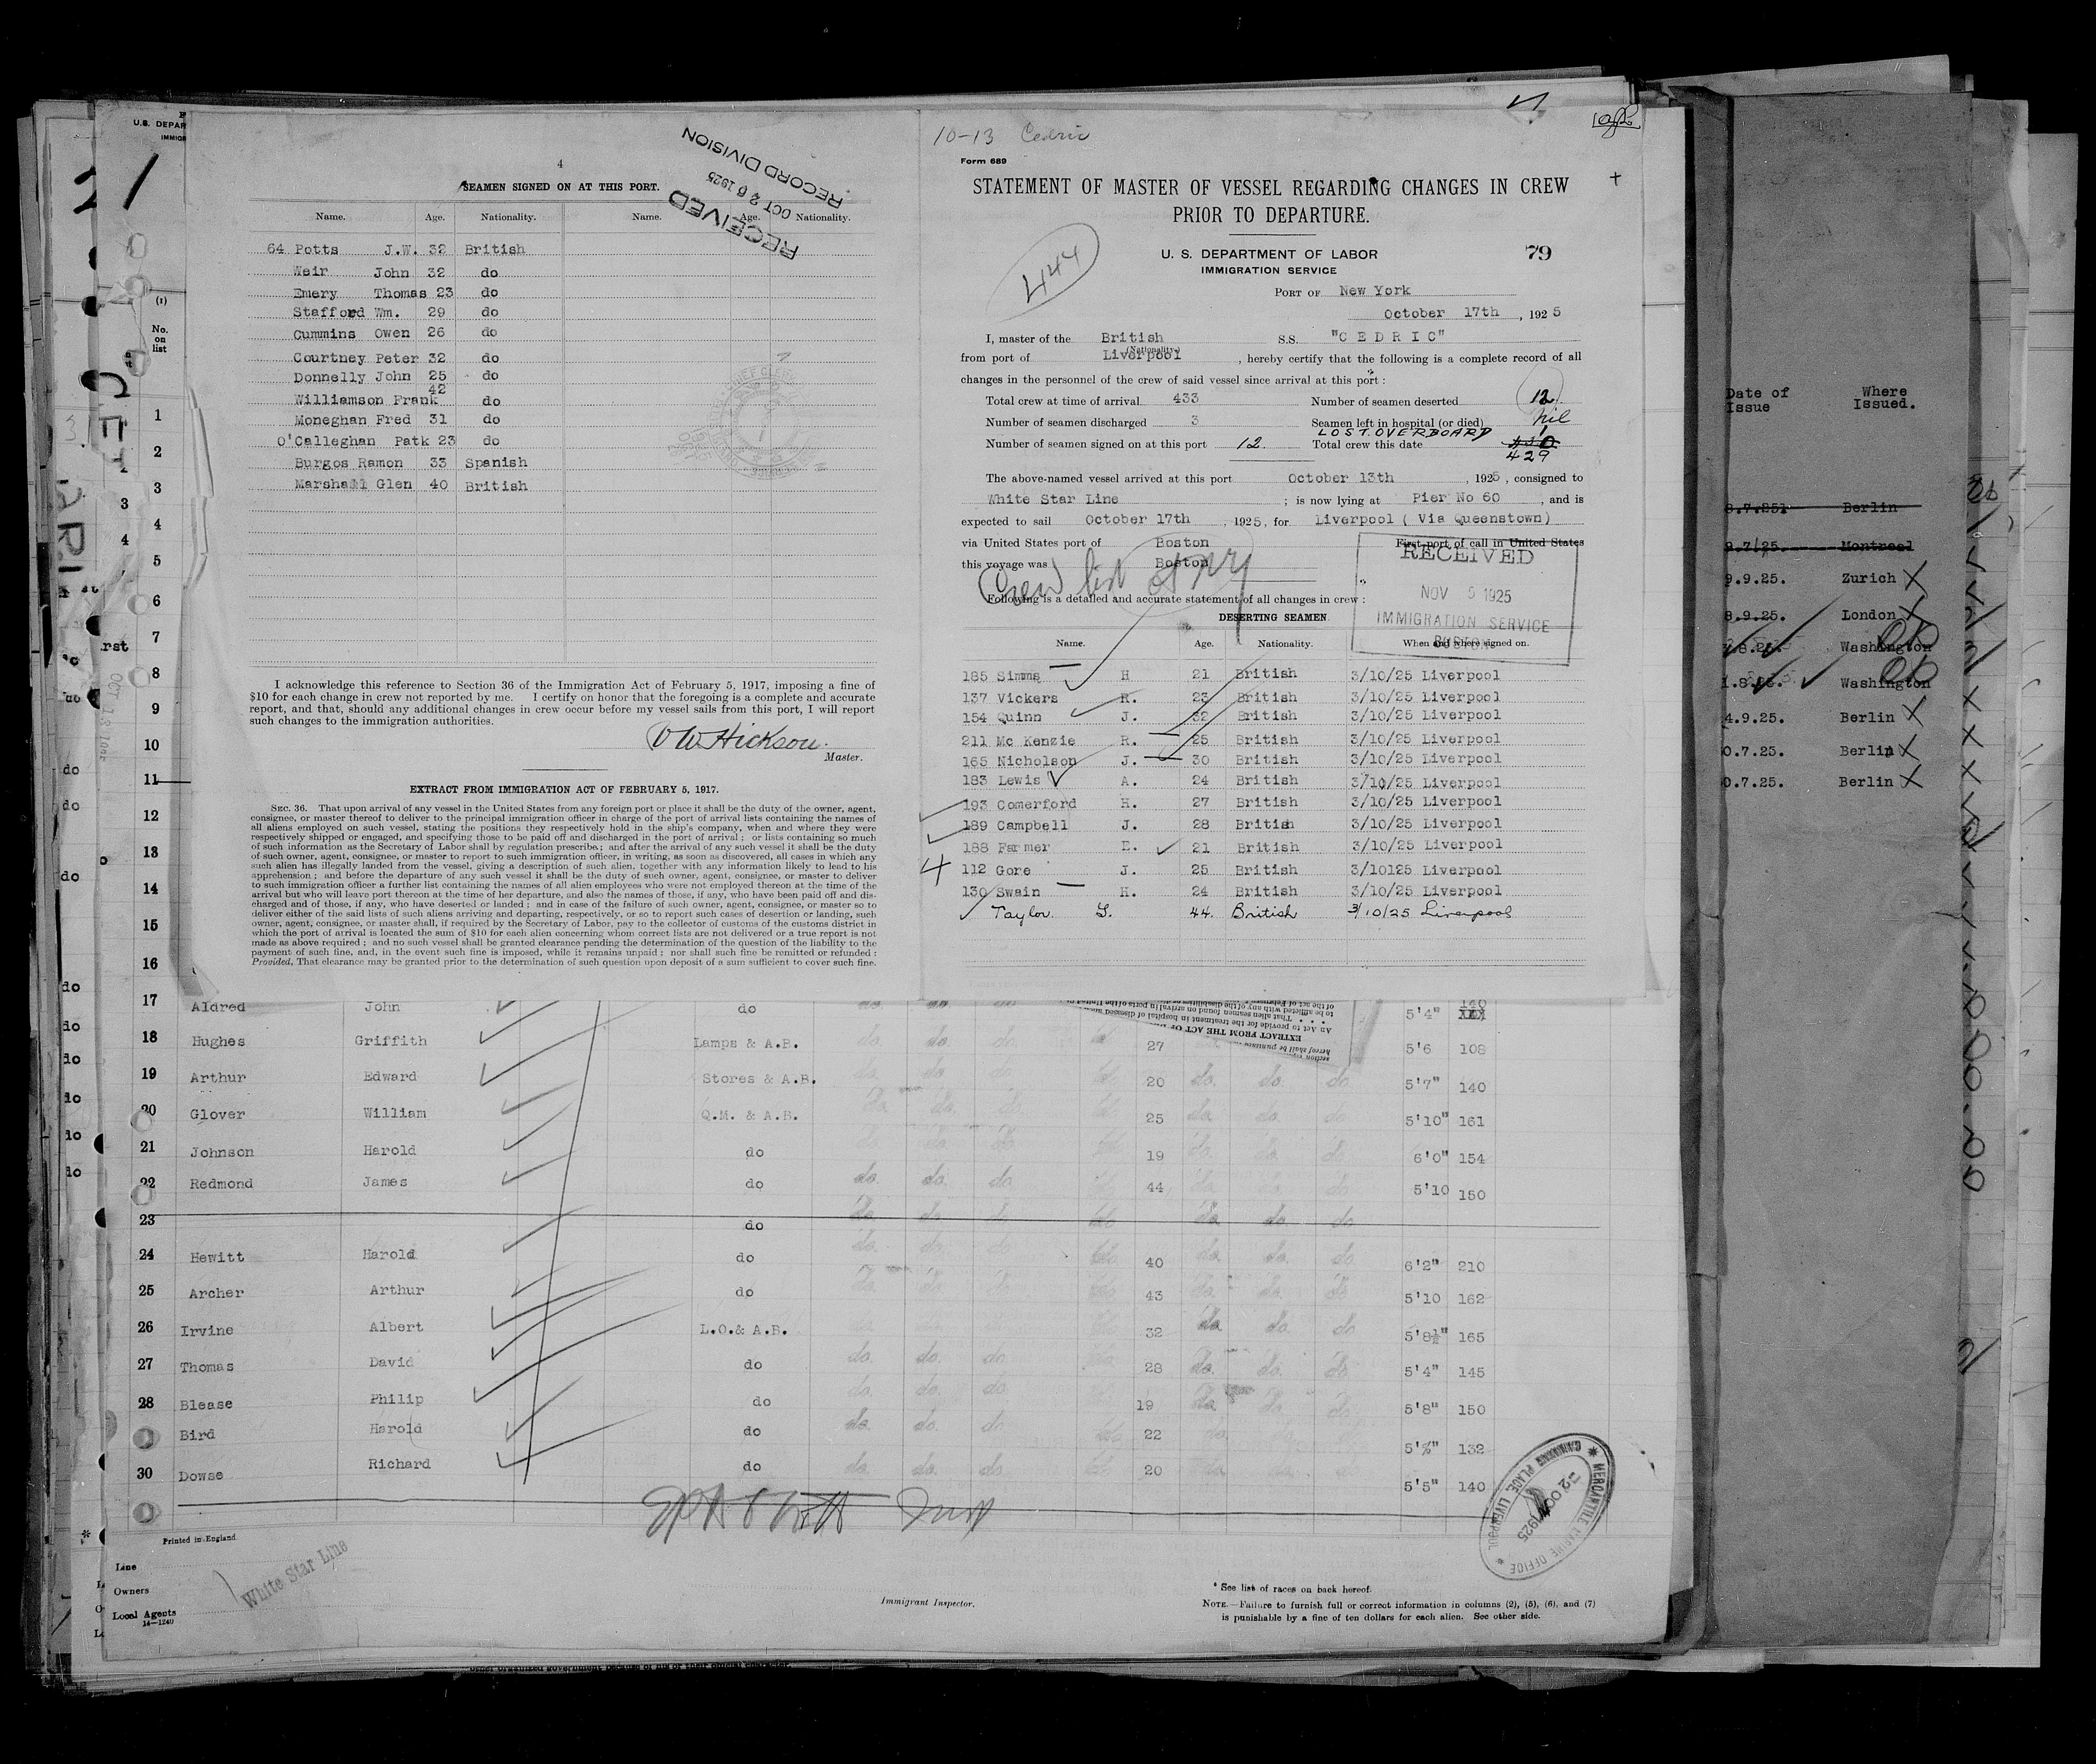 4
SEAMEN SIGNED ON AT THIS PORT.
RECEIVED
OCT 26 1925
RECORD DIVISION
Name. Age. Nationality. Name. Age. Nationality.
64 Potts J.W. 32 British
Weir John 32 do
Emery Thomas 23 do
Stafford Wm. 29 do
Cummins Owen 26 do
Courtney Peter 32 do
Donnelly John 25 do
Williamson Frank 42 do
Moneghan Fred 31 do
O'Calleghan Patk 23 do
Burgos Ramon 33 Spanish
Marshall Glen 40 British
I acknowledge this reference to Section 36 of the Immigration Act of February 5, 1917, imposing a fine of
$10 for each change in crew not reported by me. I certify on honor that the foregoing is a complete and accurate
report, and that, should any additional changes in crew occur before my vessel sails from this port, I will report
such changes to the immigration authorities.
VW Hickson.
Master.
EXTRACT FROM IMMIGRATION ACT OF FEBRUARY 5, 1917.
SEC. 36. That upon arrival of any vessel in the United States from any foreign port or place it shall be the duty of the owner, agent,
consignee, or master thereof to deliver to the principal immigration officer in charge of the port of arrival lists containing the names of
all aliens employed on such vessel, stating the positions they respectively hold in the ship's company, when and where they were
respectively shipped or engaged, and specifying those to be paid off and discharged in the port of arrival; or lists containing so much
of such information as the Secretary of Labor shall by regulation prescribe; and after the arrival of any such vessel it shall be the duty
of such owner, agent, consignee, or master to report to such immigration officer, in writing, as soon as discovered, all cases in which any
such alien has illegally landed from the vessel, giving a description of such alien, together with any information likely to lead to his
apprehension; and before the departure of any such vessel it shall be the duty of such owner, agent, consignee, or master to deliver
to such immigration officer a further list containing the names of all alien employees who were not employed thereon at the time of the
arrival but who will leave port thereon at the time of her departure, and also the names of those, if any, who have been paid off and dis-
charged and of those, if any, who have deserted or landed; and in case of the failure of such owner, agent, consignee, or master so to
deliver either of the said lists of such aliens arriving and departing, respectively, or so to report such cases of desertion or landing, such
owner, agent, consignee, or master shall, if required by the Secretary of Labor, pay to the collector of customs of the customs district in
which the port of arrival is located the sum of $10 for each alien concerning whom correct lists are not delivered or a true report is not
made as above required; and no such vessel shall be granted clearance pending the determination of the question of the liability to the
payment of such fine, and, in the event such fine is imposed, while it remains unpaid; nor shall such fine be remitted or refunded:
Provided, That clearance may be granted prior to the determination of such question upon deposit of a sum sufficient to cover such fine.
10-13 Cedric
Form 689
STATEMENT OF MASTER OF VESSEL REGARDING CHANGES IN CREW
PRIOR TO DEPARTURE.
444
U. S. DEPARTMENT OF LABOR 79
IMMIGRATION SERVICE
PORT OF New York
October 17th, 1925
I, master of the British S.S. "CEDRIC"
(Nationality)
from port of Liverpool, hereby certify that the following is a complete record of all
changes in the personnel of the crew of said vessel since arrival at this port:
Total crew at time of arrival 433 Number of seamen deserted 12
Number of seamen discharged 3 Seamen left in hospital (or died) Nil
LOST OVERBOARD 1
Number of seamen signed on at this port 12. Total crew this date 430
429
The above-named vessel arrived at this port October 13th, 1925, consigned to
White Star Line; is now lying at Pier No 60, and is
expected to sail October 17th, 1925, for Liverpool ( Via Queenstown)
via United States port of Boston First port of call in United States
this voyage was Boston
Crew list at NY
RECEIVED
NOV 5 1925
IMMIGRATION SERVICE
BOSTON
Following is a detailed and accurate statement of all changes in crew:
DESERTING SEAMEN
Name. Age. Nationality. When and where signed on.
185 Simms H 21 British 3/10/25 Liverpool
137 Vickers R. 23 British 3/10/25 Liverpool
154 Quinn J. 32 British 3/10/25 Liverpool
211 Mc Kenzie R. 25 British 3/10/25 Liverpool
165 Nicholson J. 30 British 3/10/25 Liverpool
183 Lewis A. 24 British 3/10/25 Liverpool
193 Comerford H. 27 British 3/10/25 Liverpool
189 Campbell J. 28 British 3/10/25 Liverpool
188 Farmer E. 21 British 3/10/25 Liverpool
112 Gore J. 25 British 3/10125 Liverpool
130 Swain H. 24 British 3/10/25 Liverpool
Taylor. G. 44. British 3/10/25 Liverpool
Date of Issue Where Issued.
8.7.25. Berlin
9.7/25. Montreal
9.9.25. Zurich X
8.9.25. London X
Washington
Washington
4.9.25. Berlin X
0.7.25. Berlin X
0.7.25. Berlin X
U.S. DEPAR
IMMIG
(1)
No.
on
list
1
2
3
4
5
6
7
8
9
10
11
12
13
14
15
16
17 Aldred John do 5'4"
18 Hughes Griffith Lamps & A.B. 27 5'6 108
19 Arthur Edward Stores & A.B. 20 do. do. do 5'7" 140
20 Glover William Q.M. & A.B. 25 5'10" 161
21 Johnson Harold do 19 6'0" 154
22 Redmond James do do. do. do 44 5'10 150
23 do
24 Hewitt Harold do 40 6'2" 210
25 Archer Arthur do 43 5'10 162
26 Irvine Albert L.O.& A.B. 32 do. do. do 5'8½" 165
27 Thomas David do 28 5'4" 145
28 Blease Philip do 19 5'8" 150
Bird Harold do 22 132
30 Dowse Richard do 20 5'5" 140
MERCANTILE MARINE OFFICE
-2 OCT 1925
CANNING PLACE, LIVERPOOL
Printed in England
Line
Owners
Local Agents
14—1240
White Star Line
Immigrant Inspector.
* See list of races on back hereof.
NOTE.—Failure to furnish full or correct information in columns (2), (5), (6), and (7)
is punishable by a fine of ten dollars for each alien. See other side.